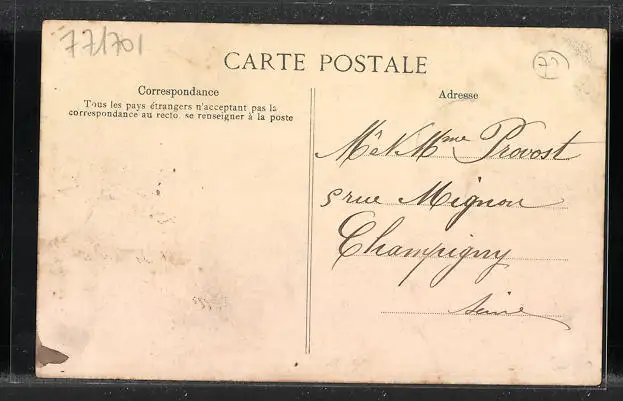 77/701
CARTE POSTALE
Correspondance
Tous les pays étrangers n'acceptant pas la
correspondance au recto, se renseigner à la poste
Adresse
Mme Provost
5 rue Mignon
Champigny
Seine